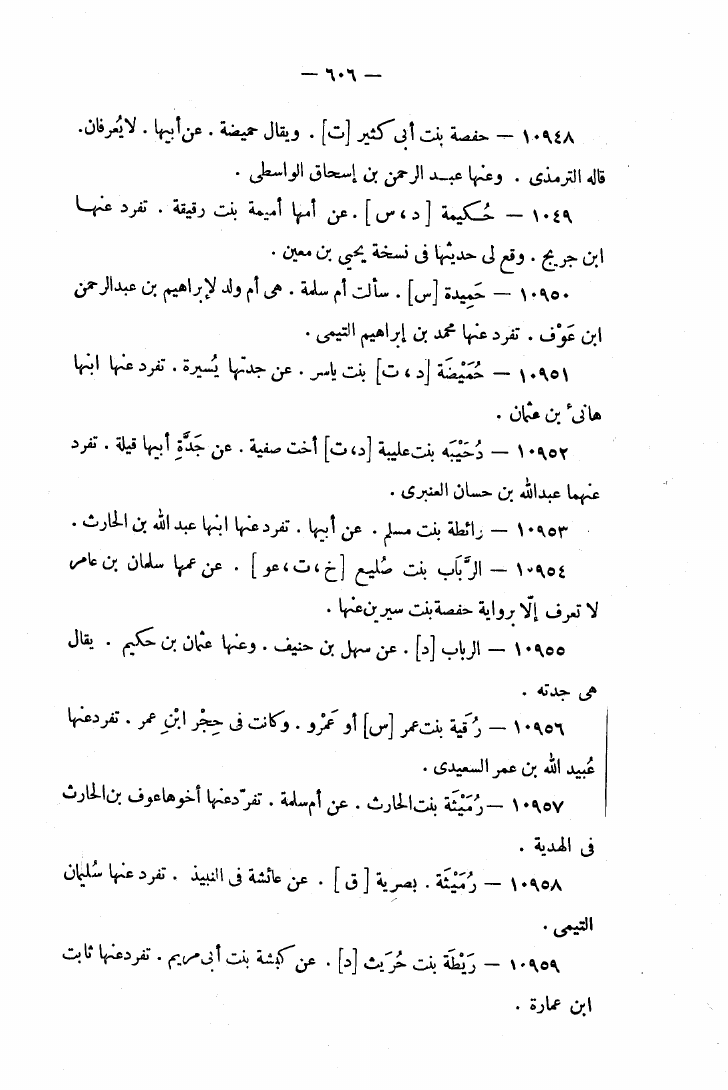 — ٦٠٦ —
١٠٩٤٨ — حفصة بنت أبى كثير [ت] . ويقال حميضة . عن أبيها . لا يُعرفان.
قاله الترمذى . وعنها عبد الرحمن بن إسحاق الواسطى .
١٠٤٩ — حُكيمة [د، س] . عن أمها أميمة بنت رقيقة . تفرد عنها
ابن جريج . وقع لى حديثها فى نسخة يحيى بن معين .
١٠٩٥٠ — حَمِيدة [س] . سألت أم سلمة . هى أم ولد لإبراهيم بن عبدالرحمن
ابن عَوْف . تفرد عنها محمد بن إبراهيم التيمى .
١٠٩٥١ — حُمَيْضَة [د ، ت] بنت ياسر . عن جدتها يُسيرة . تفرد عنها ابنها
هانئ بن عثمان .
١٠٩٥٢ — دُحَيْبَه بنت عليبة [د، ت] أخت صفية . عن جَدَّةِ أبيها قيلة . تفرد
عنهما عبدالله بن حسان العنبرى .
١٠٩٥٣ — رائطة بنت مسلم . عن أبيها . تفرد عنها ابنها عبد الله بن الحارث .
١٠٩٥٤ — الرَّبَاب بنت صُليع [خ ، ت ، عو] . عن عمها سلمان بن عامر
لا تعرف إلّا برواية حفصة بنت سيرين عنها .
١٠٩٥٥ — الرباب [د] . عن سهل بن حنيف . وعنها عثمان بن حكيم . يقال
هى جدته .
١٠٩٥٦ — رُقية بنت عمر [س] أو عَمْرو . وكانت فى حِجْر ابْنِ عمر . تفرد عنها
عُبيد الله بن عمر السعيدى .
١٠٩٥٧ — رُمَيْثَة بنت الحارث . عن أم سلمة . تفرّد عنها أخوها عوف بن الحارث
فى الهدية .
١٠٩٥٨ — رُمَيْثَة . بصرية [ق] . عن عائشة فى النبيذ . تفرد عنها سُليمان
التيمى .
١٠٩٥٩ — رَيْطَة بنت حُرَيث [د] . عن كبشة بنت أبى مريم . تفرد عنها ثابت
ابن عمارة .